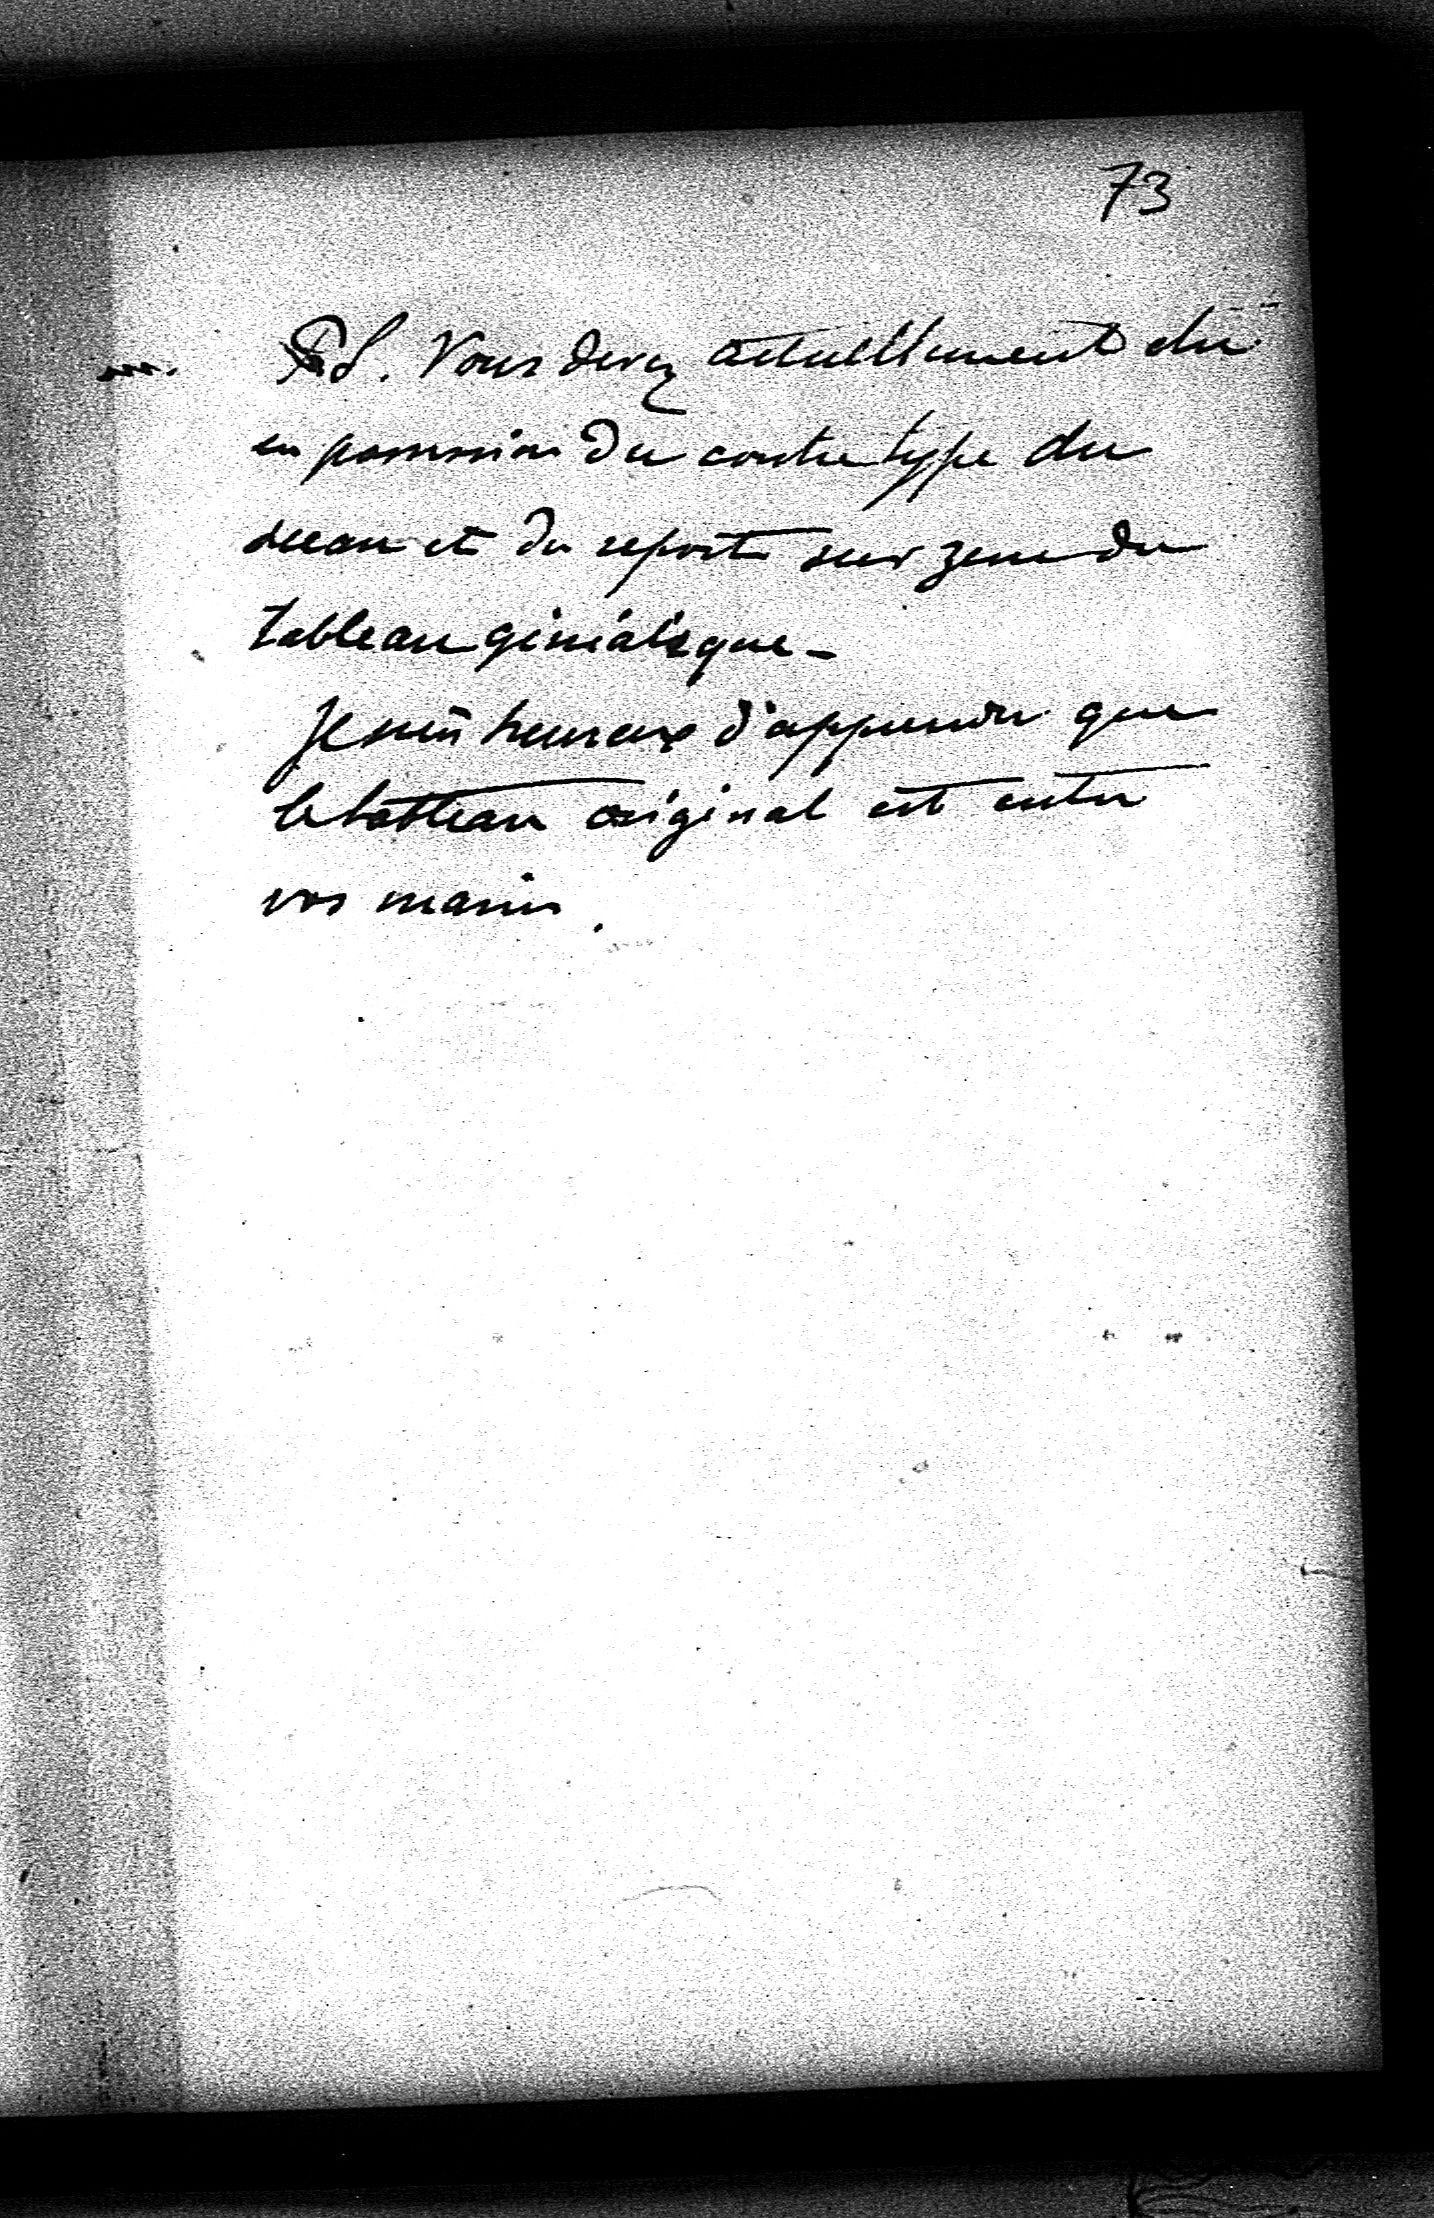 73
PS. Vous devez actuellement être
en possession du contretype du
sceau et du report sur zinc du
tableau généalogique –
Je suis heureux d'apprendre que
le tableau original est entre
vos mains.